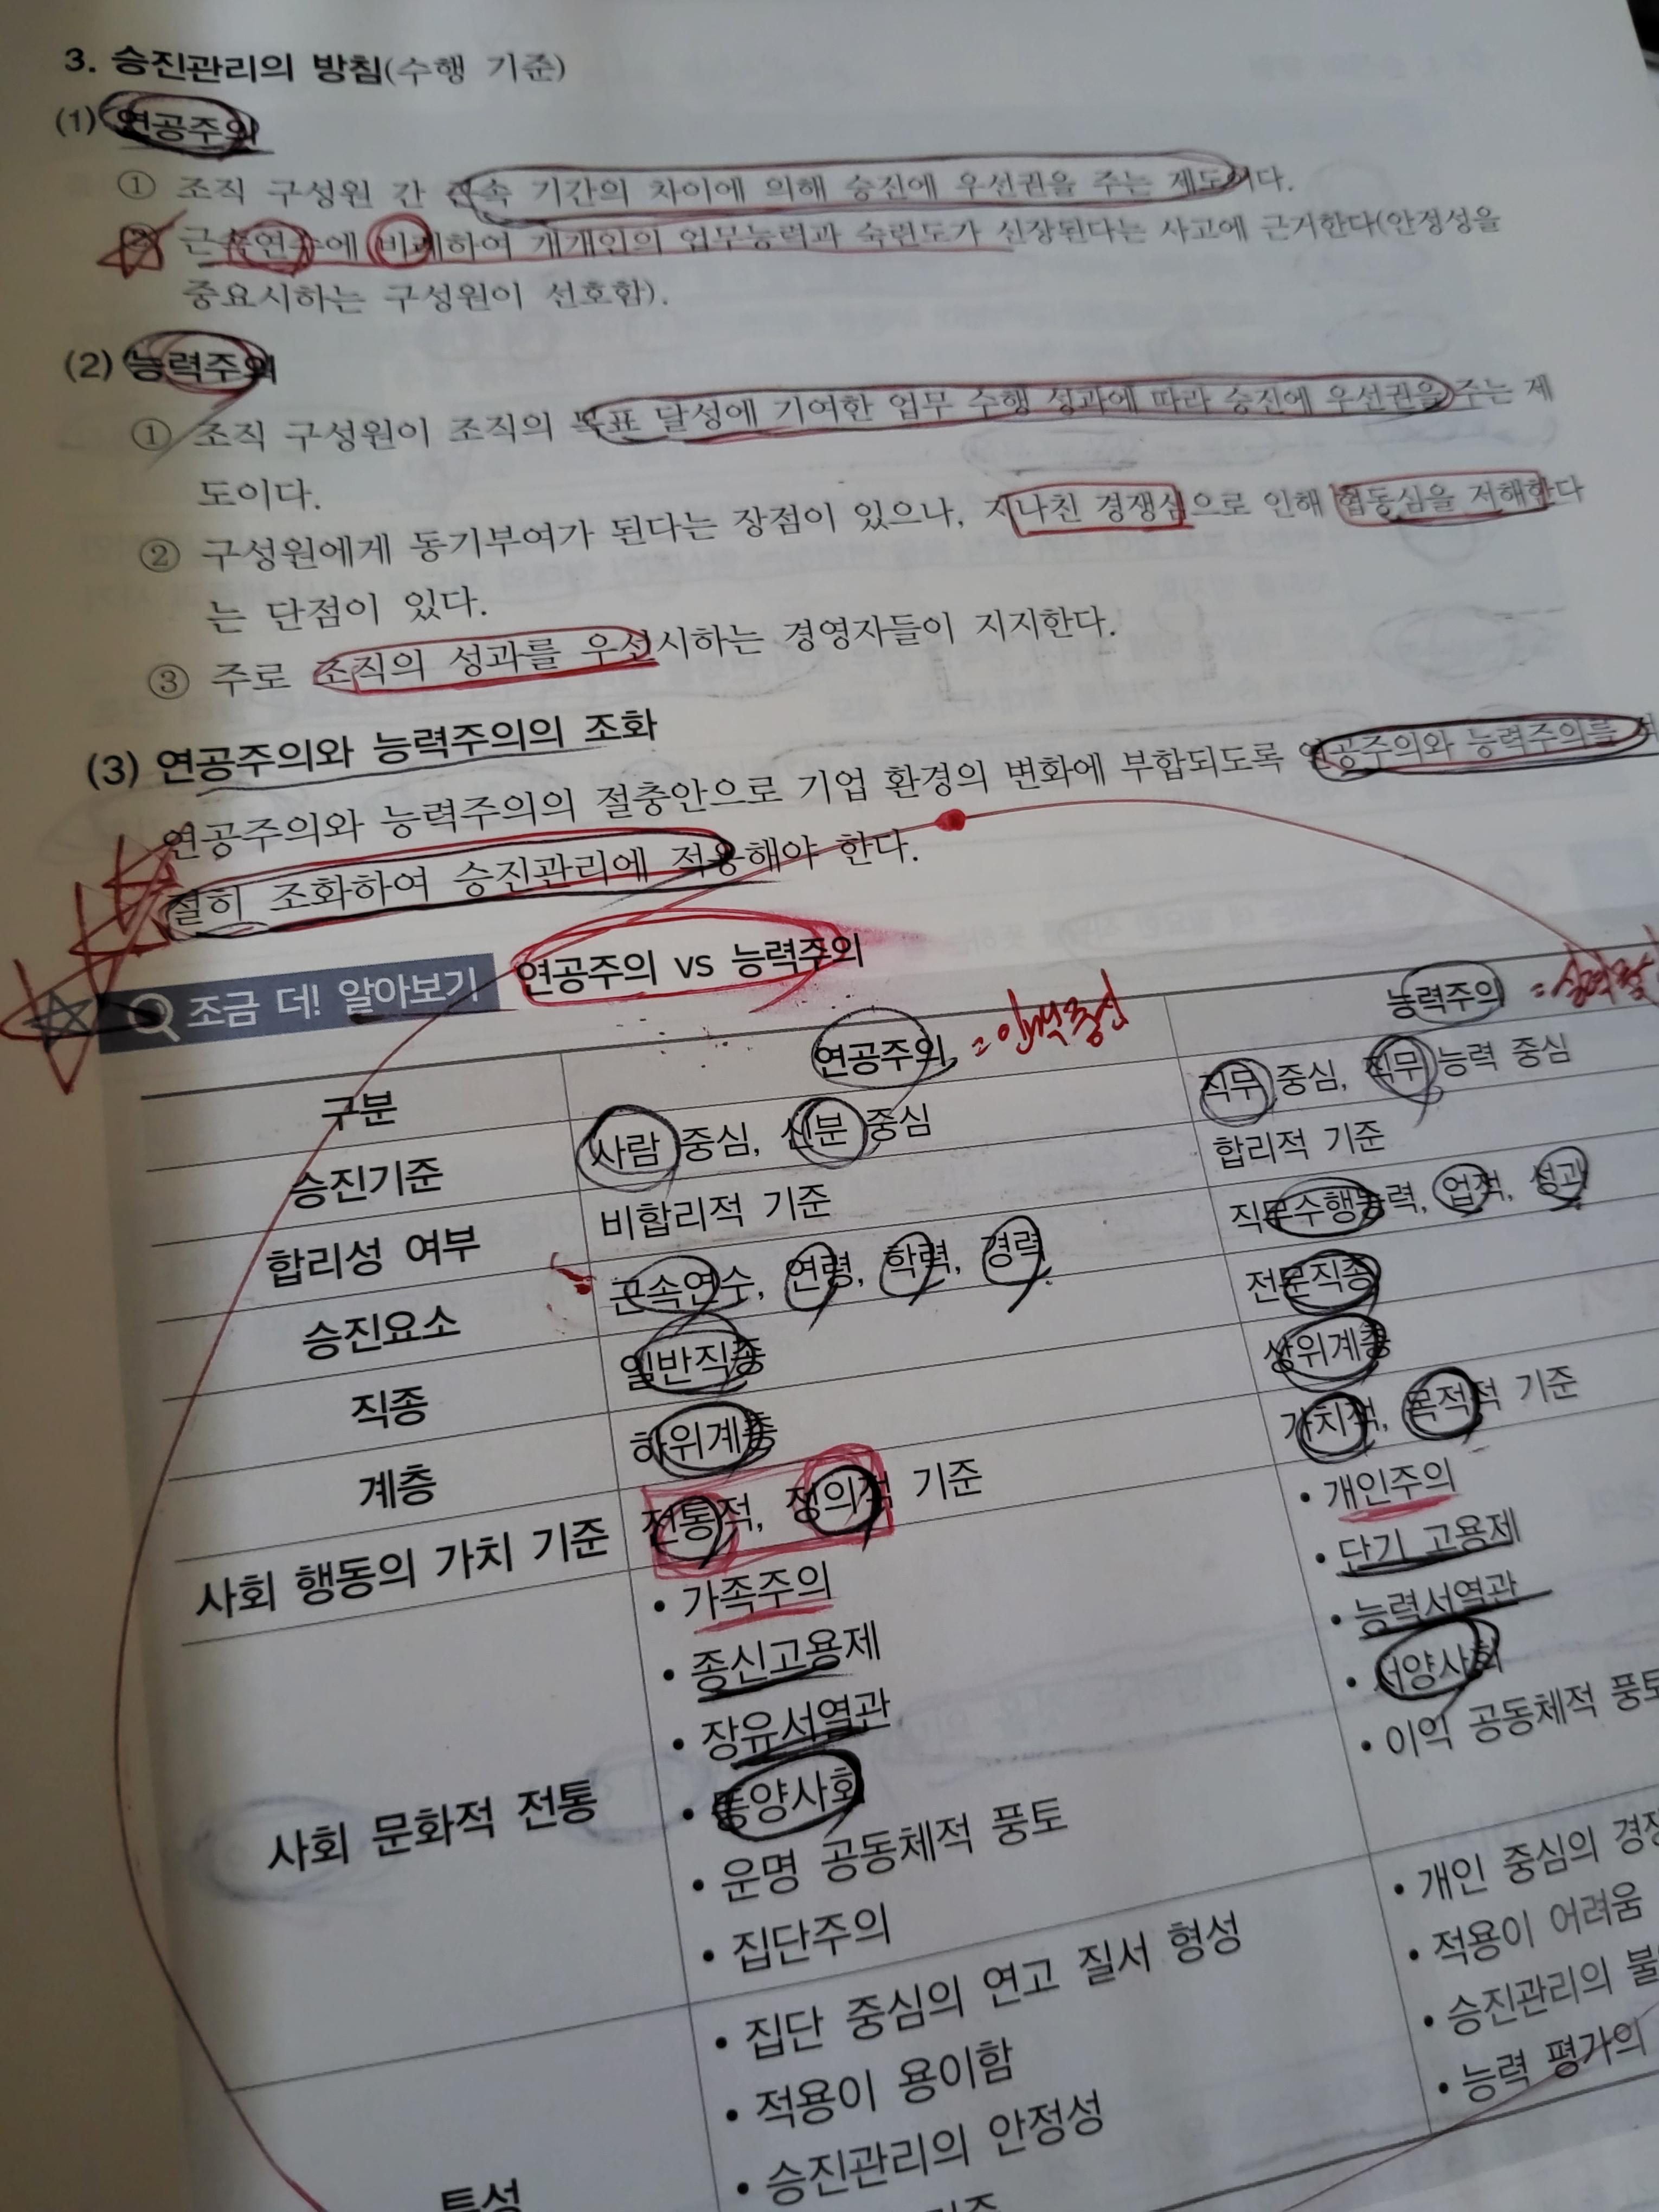 3. 승진관리의 방침(수행 기준)
(1) 연공주의
① 조직 구성원 간 근속 기간의 차이에 의해 승진에 우선권을 주는 제도이다.
② 근속연수에 비례하여 개개인의 업무능력과 숙련도가 신장된다는 사고에 근거한다(안정성을
중요시하는 구성원이 선호함).
(2) 능력주의
① 조직 구성원이 조직의 목표 달성에 기여한 업무 수행 성과에 따라 승진에 우선권을 주는 제
도이다.
② 구성원에게 동기부여가 된다는 장점이 있으나, 지나친 경쟁심으로 인해 협동심을 저해한다
는 단점이 있다.
③ 주로 조직의 성과를 우선시하는 경영자들이 지지한다.
(3) 연공주의와 능력주의의 조화
연공주의와 능력주의의 절충안으로 기업 환경의 변화에 부합되도록 연공주의와 능력주의를 적
절히 조화하여 승진관리에 적용해야 한다.
조금 더! 알아보기 연공주의 vs 능력주의
구분 연공주의 능력주의
승진기준 사람 중심, 신분 중심 직무 중심, 직무 능력 중심
합리성 여부 비합리적 기준 합리적 기준
승진요소 근속연수, 연령, 학력, 경력 직무수행능력, 업적, 성과
직종 일반직종 전문직종
계층 하위계층 상위계층
사회 행동의 가치 기준 전통적, 정의적 기준 가치적, 목적적 기준
사회 문화적 전통
• 가족주의
• 종신고용제
• 장유서열관
• 동양사회
• 운명 공동체적 풍토
• 집단주의
• 개인주의
• 단기 고용제
• 능력서열관
• 서양사회
• 이익 공동체적 풍토
특성
• 집단 중심의 연고 질서 형성
• 적용이 용이함
• 승진관리의 안정성
• 개인 중심의 경쟁
• 적용이 어려움
• 승진관리의 불
• 능력 평가의